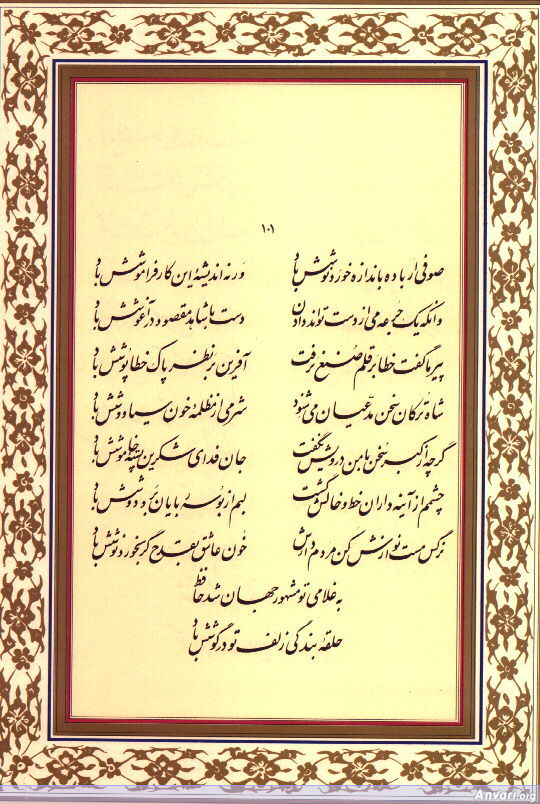 ۱۰۱
صوفی ار باده باندازه خورد نوشش باد ورنه اندیشهٔ این کار فراموشش باد
وانکه یک جرعه می از دست تواند دادن دست با شاهد مقصود در آغوشش باد
پیر ما گفت خطا بر قلم صنع نرفت آفرین بر نظر پاک خطا پوشش باد
شاه ترکان سخن مدعیان می‌شنود شرمی از مظلمهٔ خون سیاووشش باد
گرچه از کبر سخن با من درویش نگفت جان فدای شکرین پستهٔ خاموشش باد
چشمم از آینه داران خط و خالش گشت لبم از بوسه ربایان بر و دوشش باد
نرگس مست نوازش کن مردم دارش خون عاشق بقدح گر بخورد نوشش باد
به غلامی تو مشهور جهان شد حافظ
حلقهٔ بندگی زلف تو در گوشش باد
Anvari.org